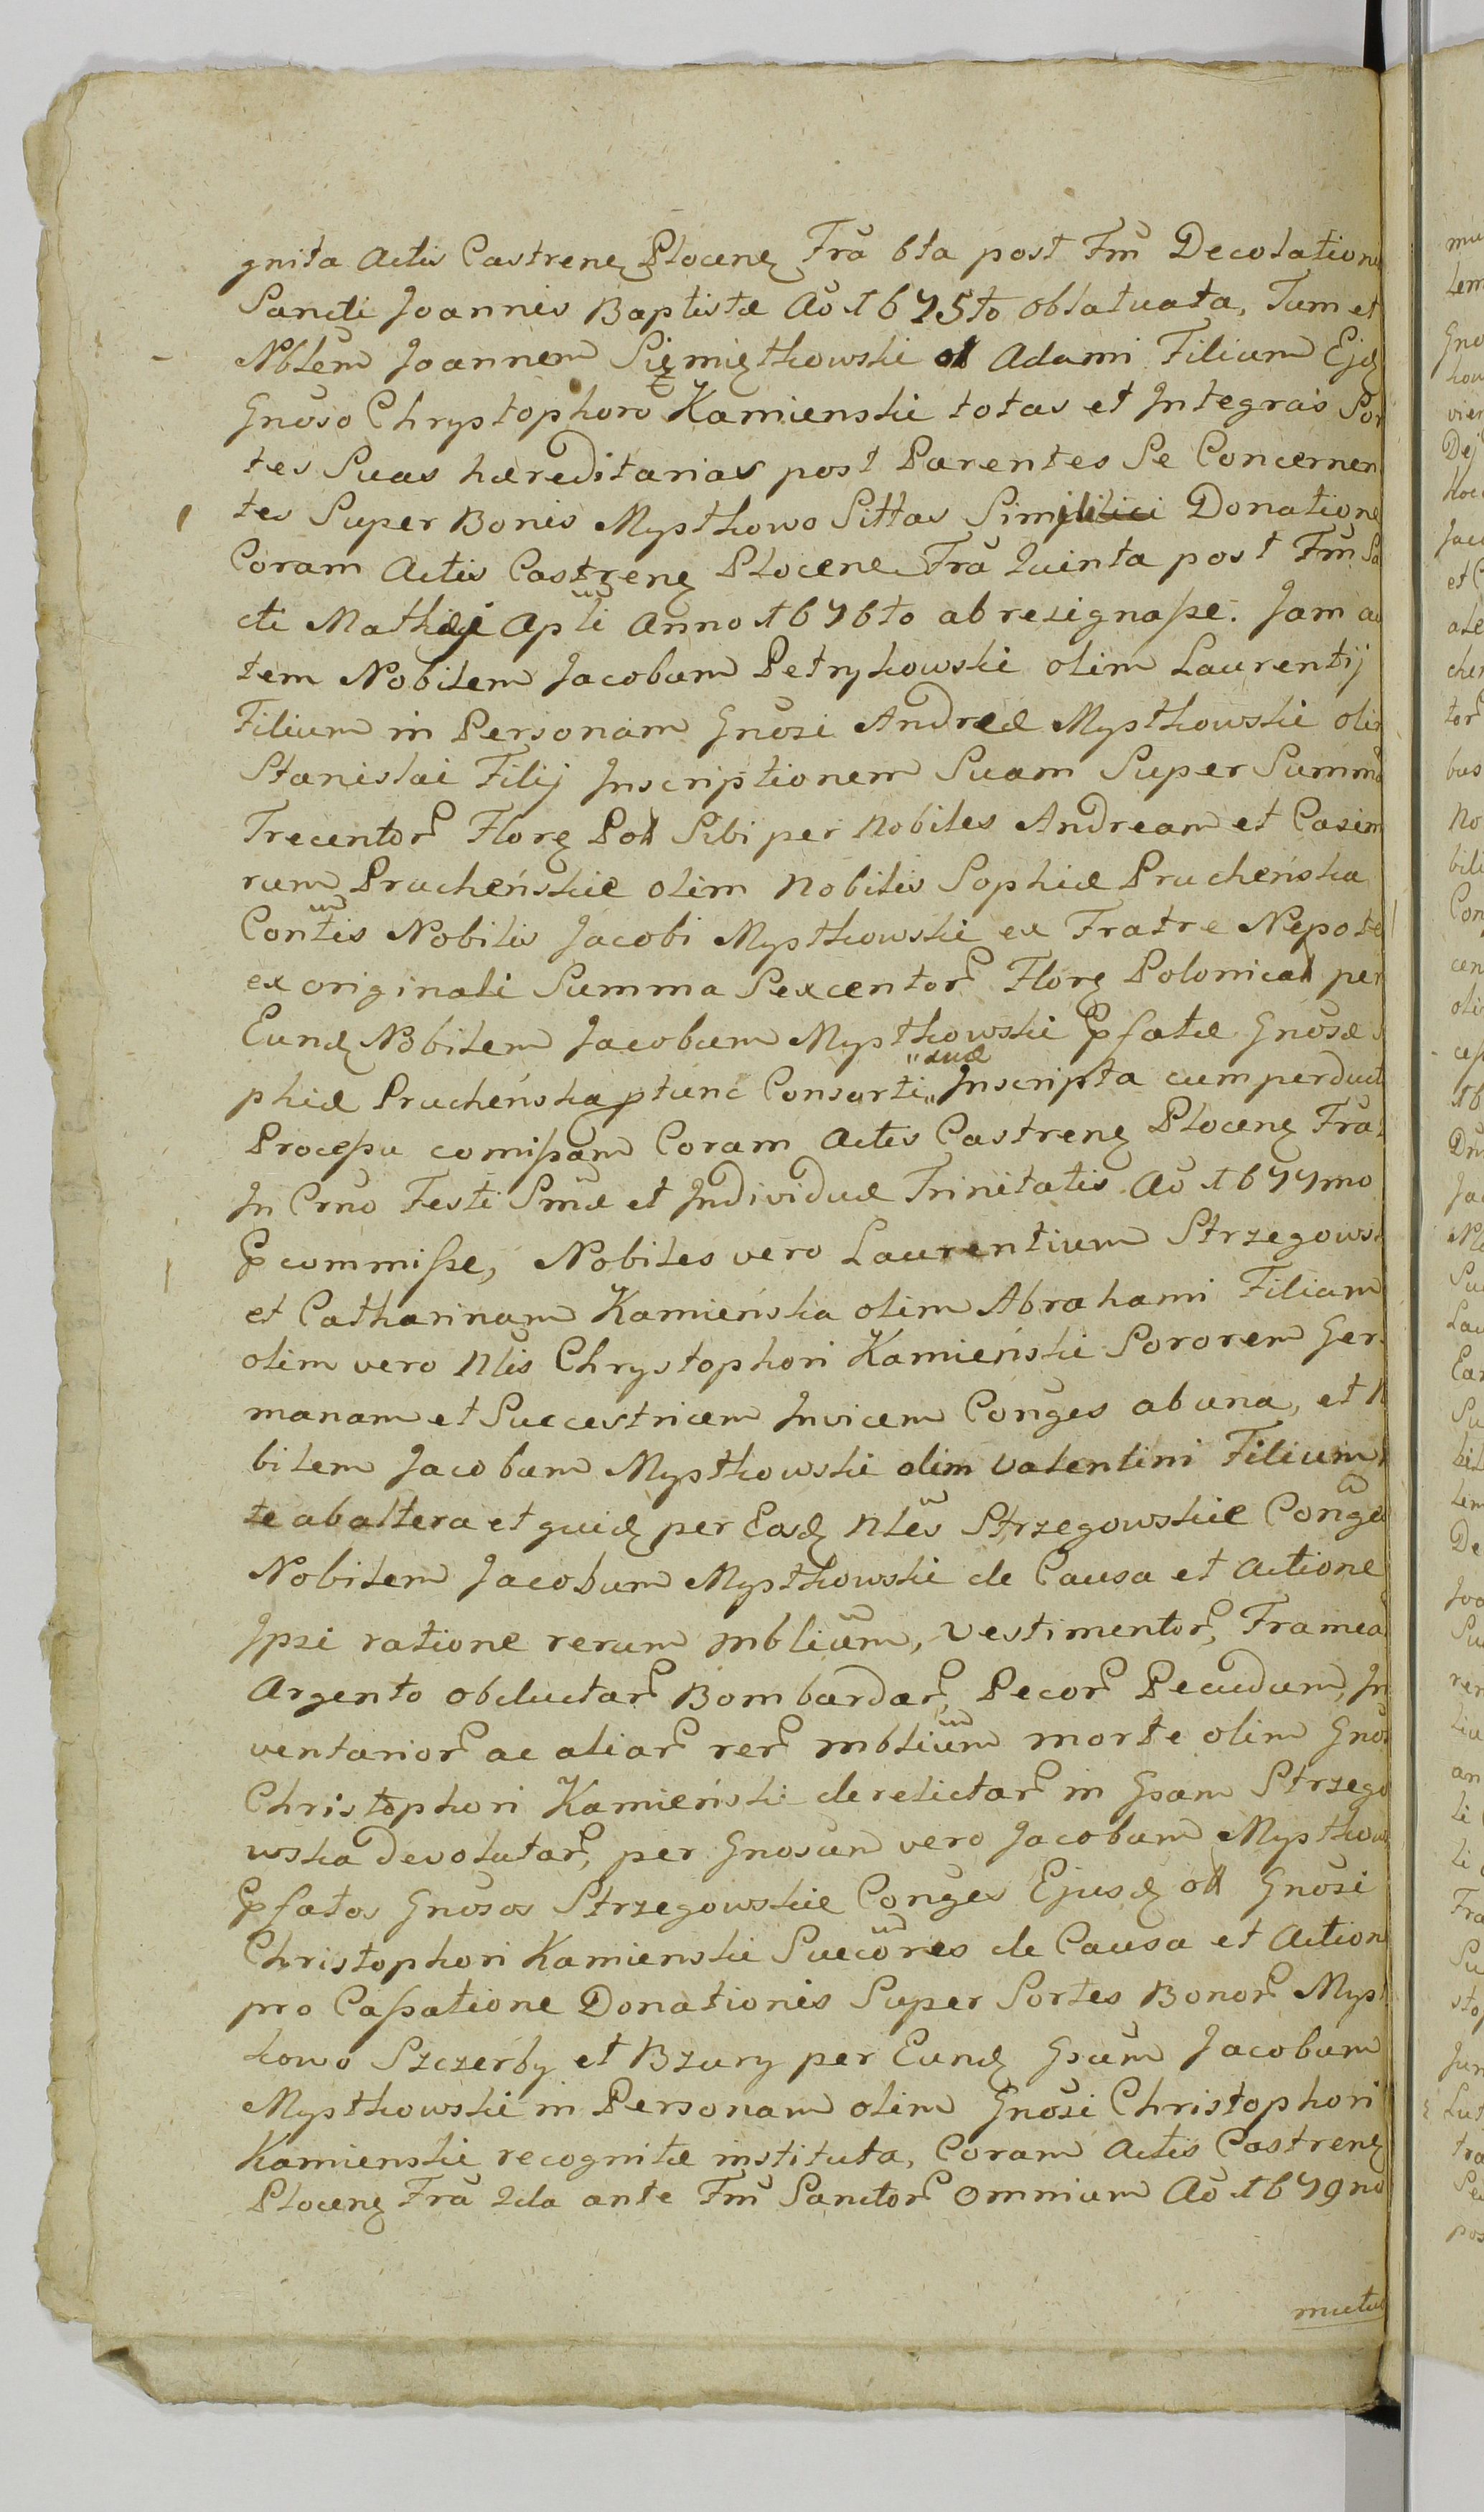 gnita Actis Castrenȩ Plocenȩ Fra 6ta post Fm̃ Decolatione
Sancti Joannis Baptistæ Aõ 1675to oblatuata, Tum et
Nblem̃ Joannem Siemiętkowski ol Adami Filium Ejȩ
Gnõso Chrystophoro Kamienski totas et Integras Sor
tes Suas hæreditarias post Parentes Se Concernen
tes Super Bonis Mystkowo Sittas Simili Donatione
Coram Actis Castrenȩ Plocene Fra Quinta post Fm̃ Sa
cti Mathæi Apl̃i Anno 1676to abresignaſse. Jam au
tem Nobilem Jacobum Petrykowski olim Laurentij
Filium in Personam Gnõsi Andreæ Mystkowski olim
Stanislai Filij Inscriptionem Suam Super Summã
Trecentor Florȩ Pol Sibi per Nobiles Andream et Casim
rum Prucheńskie olim Nobilis Sophiæ Pruchenska
Contis̃ Nobilis Jacobi Mystkowski ex Fratre Nepote
ex originali Summa Sexcentor Florȩ Polonical per
Eundȩ Nobilem Jacobum Mystkowski Pfatæ Gnõsæ
phiæ Pruchenska p tunc Consorti suæ Inscripta cum perduct
Proceſsu comiſsam Coram Actis Castrenȩ Plocenȩ Fra
In Crno Festi Smæ et Individuæ Trinitatis Aõ 1677mo
Pcommiſse, Nobiles vero Laurentium Strzegows
et Catharinam Kamieńska olim Abrahami Filiam
olim vero Nlis Chrystophori Kamieński Sororem Ger
manam et Succestricem Invicem Conges ab una, et N
bilem Jacobum Mystkowski olim Valentini Filium
te ab altera et quidȩ per Eosdȩ Nles Strzegowskie Conge
Nobilem Jacobum Mystkowski de Causa et Actione
Ipsi ratione rerum mblium, Vestimentor, Framea
Argento obductar Bombardar, Pecor Pecudum, In
ventarior ac aliar rer mblium morte olim Gnos
Christophori Kamieński derelictar in Gsam Strzego
wska Devolutar, per Gnosum vero Jacobum Mystkow
Pfatos Gnosos Strzegowskie Conges Ejusdȩ oll Gnõsi
Christophori Kamienski Succores de Causa et Action
pro Caſsatione Donationis Super Sortes Bonor Myst
kowo Szczerby et Bzury per Eundȩ Gsum Jacobum
Mystkowski in Personam olim Gnõsi Christophori
Kamienski recognitæ instituta, Coram Actis Castrenȩ
Plocenȩ Fra 2da ante Fm̃ Sanctor Omnium Aõ 1679no
mutu